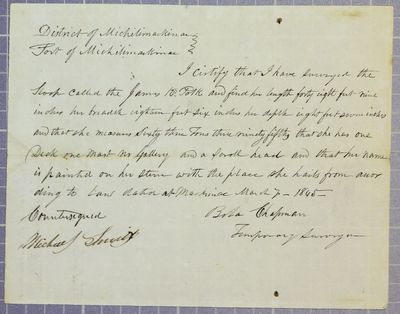 District of Michilimackinac
Port of Michilimackinac
I certify that I have surveyed the
Sloop called the James K. Polk and find her length forty eight feet nine
inches her breadth eighteen feet six inches her depth eight feet seven inches
and that she measures Sixty three Tons three ninety fifths that she has one
Deck one mast no Gallery and a Scroll head and that her name
is painted on her stern with the place she hails from accor
ding to Law Dated at Mackinac March 7 - 1845 -
Countersigned Bela Chapman
Michael Temporary Surveyor